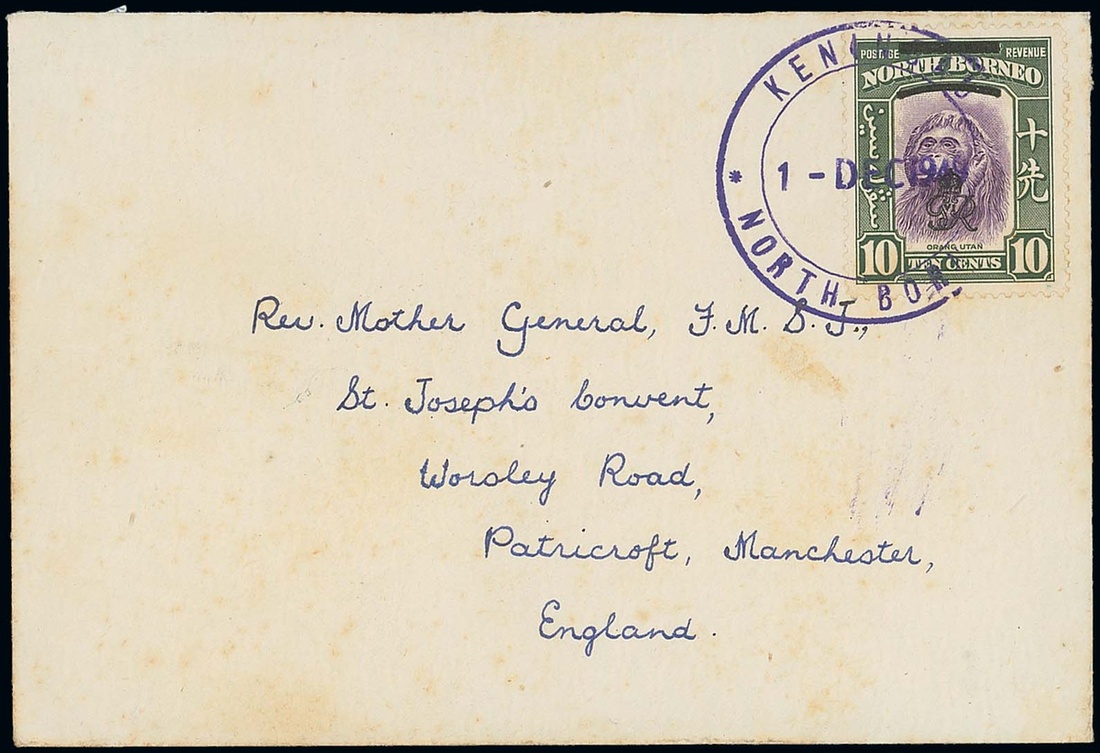 POSTAGE REVENUE
NORTH BORNEO
十先
ORANG UTAN
10 TEN CENTS 10
GR
1 - DEC 1949
* NORTH BOR
Rev. Mother General, F. M. S. J.,
St. Joseph's Convent,
Worsley Road,
Patricroft, Manchester,
England.